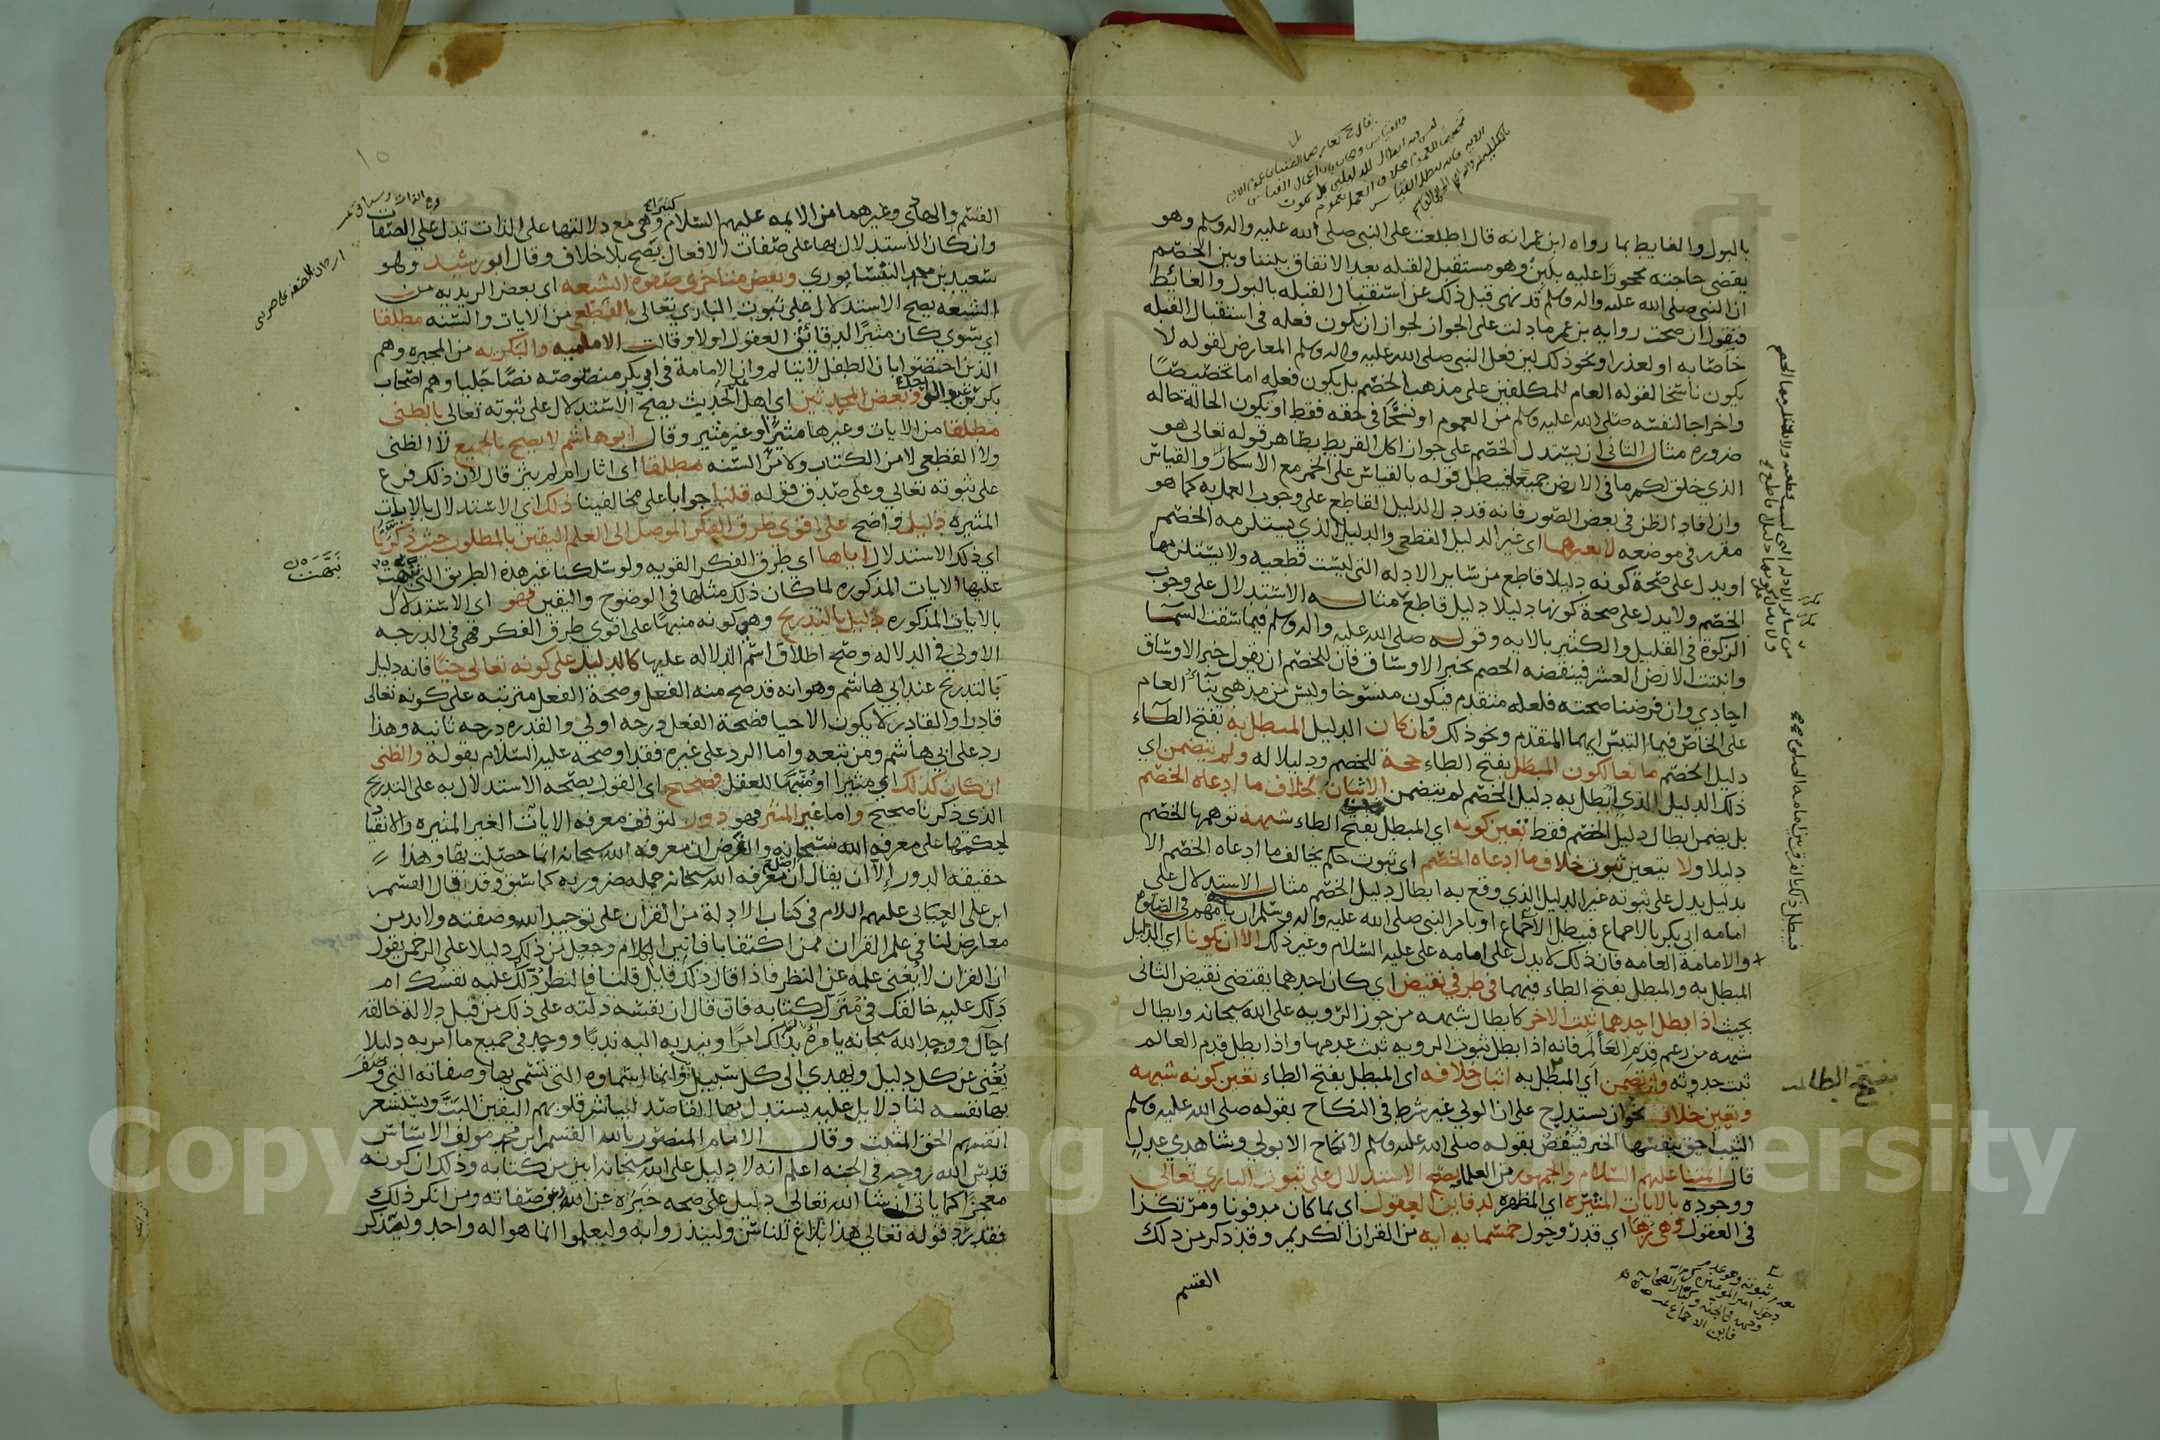 بالبول والغايط بما رواه ابن عمر انه قال اطلعت على النبي صلى الله عليه واله وسلم وهو
يقضي حاجته محجورا عليه بلبن وهو مستقبل القبله بعد الاتفاق بيننا وبين الخصم
ان النبي صلى الله عليه واله وسلم قد نهى قبل ذلك عن استقبال القبله بالبول والغائط
فيقول ان صحت روايه بن عمر ما دلت على الجواز لجواز ان يكون فعله في استقبال القبله
خاصا به او لعذر او نحو ذلك لين فعل النبي صلى الله عليه واله وسلم المعارض لقوله لا
يكون ناسخا لقوله العام للمكلفين على مذهب الخصم بل يكون فعله اما تخصيصا
واخراجا لنفسه صلى الله عليه وسلم من العموم او نسخا في حقه فقط او يكون الحالة حاله
ضروره مثال الثاني ان يستدل الخصم على جواز اكل القريط بظاهر قوله تعالى هو
الذي خلق لكم ما في الارض جميعا فيبطل قوله بالقياس على الخمر مع الاسكار والقياس
وان افاد الظن في بعض الصور فانه قد دل الدليل القاطع على وجوب العمل به كما هو
مقرر في موضعه لا بغيرهما اي غير الدليل القطعي والدليل الذي يستلزمه الخصم
او يدل على صحة كونه دليلا قاطع من سائر الادله التي ليست قطعيه ولا يستلزمها
الخصم ولا يدل على صحة كونها دليلا دليل قاطع مثاله الاستدلال على وجوب
الزكوة في القليل والكثير بالايه وقوله صلى الله عليه واله وسلم فيما سقت السما
وانبتت الارض العشر فينقضه الخصم بخبر الاوساق فان للخصم ان يقول خبر الاوساق
احادي وان فرضنا صحته فلعله متقدم فيكون منسوخا وليس من مذهبي بناء العام
على الخاص فيما التبس ايهما المتقدم ونحو ذلك فان كان الدليل المبطل به بفتح الطاء
دليل الخصم مانعا لكون المبطل بفتح الطاء حجة للخصم ودليلا له ولم يتضمن اي
ذلك الدليل الذي ابطل به دليل الخصم لم يتضمن الاثبات بخلاف ما ادعاه الخصم
بل يضمن ابطال دليل الخصم فقط تعين كونه اي المبطل بفتح الطاء شبهة توهمها الخصم
دليلا ولا يتعين ثبوت خلاف ما ادعاه الخصم اي ثبوت حكم يخالف ما ادعاه الخصم الا
بدليل يدل على ثبوته غير الدليل الذي وقع به ابطال دليل الخصم مثال الاستدلال على
امامه ابي بكر بالاجماع فيبطل الاجماع او بامر النبي صلى الله عليه واله وسلم ان يامهم في الصلوة
والامامة العامه فان ذلك لا يدل على امامه علي عليه السلام وغير ذلك الا ان يكونا اي الدليل
المبطل به والمبطل بفتح الطاء فيهما في طرفي نقيض اي كان احدهما يقتضي نقيض الثاني
بحيث اذا بطل احدهما ثبت الاخر كابطال شبهه من جوز الرويه على الله سبحانه وابطال
شبهه من زعم قدم العالم فانه اذا بطل ثبوت الرويه ثبت عدمها واذا بطل قدم العالم
ثبت حدوثه وان تضمن اي المبطل به اثبات خلافه اي المبطل بفتح الطاء تعين كونه شبهه
وتعين خلافه نحو ان يستدل ح على ان الولي غير شرط في النكاح بقوله صلى الله عليه وسلم
الثيب احق بنفسها الخبر فينقض بقوله صلى الله عليه وسلم لا نكاح الا بولي وشاهدي عدل
قال ائمتنا عليهم السلام والجمهور من العلما يصح الاستدلال على ثبوت الباري تعالى
ووجوده بالايات المثيره اي المظهره لدفاين العقول اي بما كان مدفونا ومرتكزا
في العقول وهي زها اي قدر وحول خمسمايه ايه من القران الكريم وقد ذكر من ذلك
القسم
القسم والهادي وغيرهما من الايمه عليهم السلام كثيرا وهي مع دلالتها على الذات تدل على الصفات
وان كان الاستدلال بها على صفات الافعال يصح بلا خلاف وقال ابو رشيد وهو
سعيد بن محمد النيسابوري وبعض متاخري صفوة الشيعه اي بعض الزيديه من
الشيعه يصح الاستدلال على ثبوت الباري تعالى بالقطعي من الايات والسنه مطلقا
اي سوى كان مثيرا لدقائق العقول اولا وقالت الاماميه والبكريه من المجبره وهم
الذين اختصوا بان الطفل لا يتالم وان الامامة في ابي بكر منصوصه نصا جليا وهم اصحاب
بكر بن عبد الواحد وبعض المحدثين اي اهل الحديث يصح الاستدلال على ثبوته تعالى بالظني
مطلقا من الايات وغيرها مثيرا او غير مثير وقال ابو هاشم لا يصح بالجميع لا الظني
ولا القطعي لا من الكتاب ولا من السنه مطلقا اي اثار ام لم يثر قال لان ذلك فرع
على ثبوته تعالى وعلى صدق قوله قلنا جوابا على مخالفينا ذلك اي الاستدلال بالايات
المثيره دليل واضح على اقوى طرق الفكر الموصل الى العلم اليقين بالمطلوب حيث ذكرنا
اي ذلك الاستدلال اياها اي طرق الفكر القويه ولو سلكنا غير هذه الطريق التي نبهت
عليها الايات المذكوره لما كان ذلك مثلها في الوضوح واليقين فهو اي الاستدلال
بالايات المذكوره دليل بالتدريج وهو كونه منبها على اقوى طرق الفكر فهي في الدرجه
الاولى في الدلاله وصح اطلاق اسم الدلاله عليها كالدليل على كونه تعالى حيا فانه دليل
بالتدريج عند ابي هاشم وهو انه قد صح منه الفعل وصحة الفعل مترتبه على كونه تعالى
قادرا والقادر لا يكون الا حيا فصحة الفعل درجه اولى والقدره درجه ثانيه وهذا
رد على ابي هاشم ومن تبعه واما الرد على غيره فقد اوضحه عليه السلام بقوله والظني
ان كان كذلك اي مثيرا او منبها للعقل فصحيح اي القول بصحه الاستدلال به على التدريج
الذي ذكرنا صحيح واما غير المثير فهو دور لتوقف معرفه الايات الغير المثيره والانقيا
لحكمها على معرفه الله سبحانه والغرض ان معرفه الله سبحانه انما حصلت بها وهذا
حقيقه الدور الا ان يقال ان اصل معرفه الله سبحانه جمله ضروريه كما سبق وقد قال القسم
ابن علي العياني عليهم السلام في كتاب الادلة من القران على توحيد الله وصفته ولا بد من
معارض لنا في علم القران ممن اكتفا بافانين الكلام وجعل من ذلك دليلا على الرحمن يقول
ان القران لا يغني علمه عن النظر فاذا قال ذلك قايل قلنا فالنظر دلك عليه نفسك ام
دلك عليه خالقك في منزل كتابه فان قال ان نفسه دلته على ذلك من قبل دلالة خالقه
احال ووجد الله سبحانه يامره بذلك امرا ويندبه اليه ندبا ووجد في جميع ما امر به دليلا
يغني عن كل دليل ويهدي الى كل سبيل وانما اسماوه التي تسمى بها وصفاته التي وصف
بها نفسه لنا دلايل عليه يستدل بها القاصد ليباشر قلوبهم اليقين البت ويستشعر
انفسهم الحق المثبت وقال الامام المنصور بالله القسم ابن محمد مولف الاساس
قدس الله روحه في الجنه اعلم انه لا دليل على الله سبحانه ابين من كتابه وذلك ان كونه
معجزا كما ياتي ان شا الله تعالى دليل على صحه خبره عن الله وعن صفاته ومن انكر ذلك
فقد رد قوله تعالى هذا بلاغ للناس ولينذروا به وليعلموا انما هو اله واحد وليذكر
نبهت